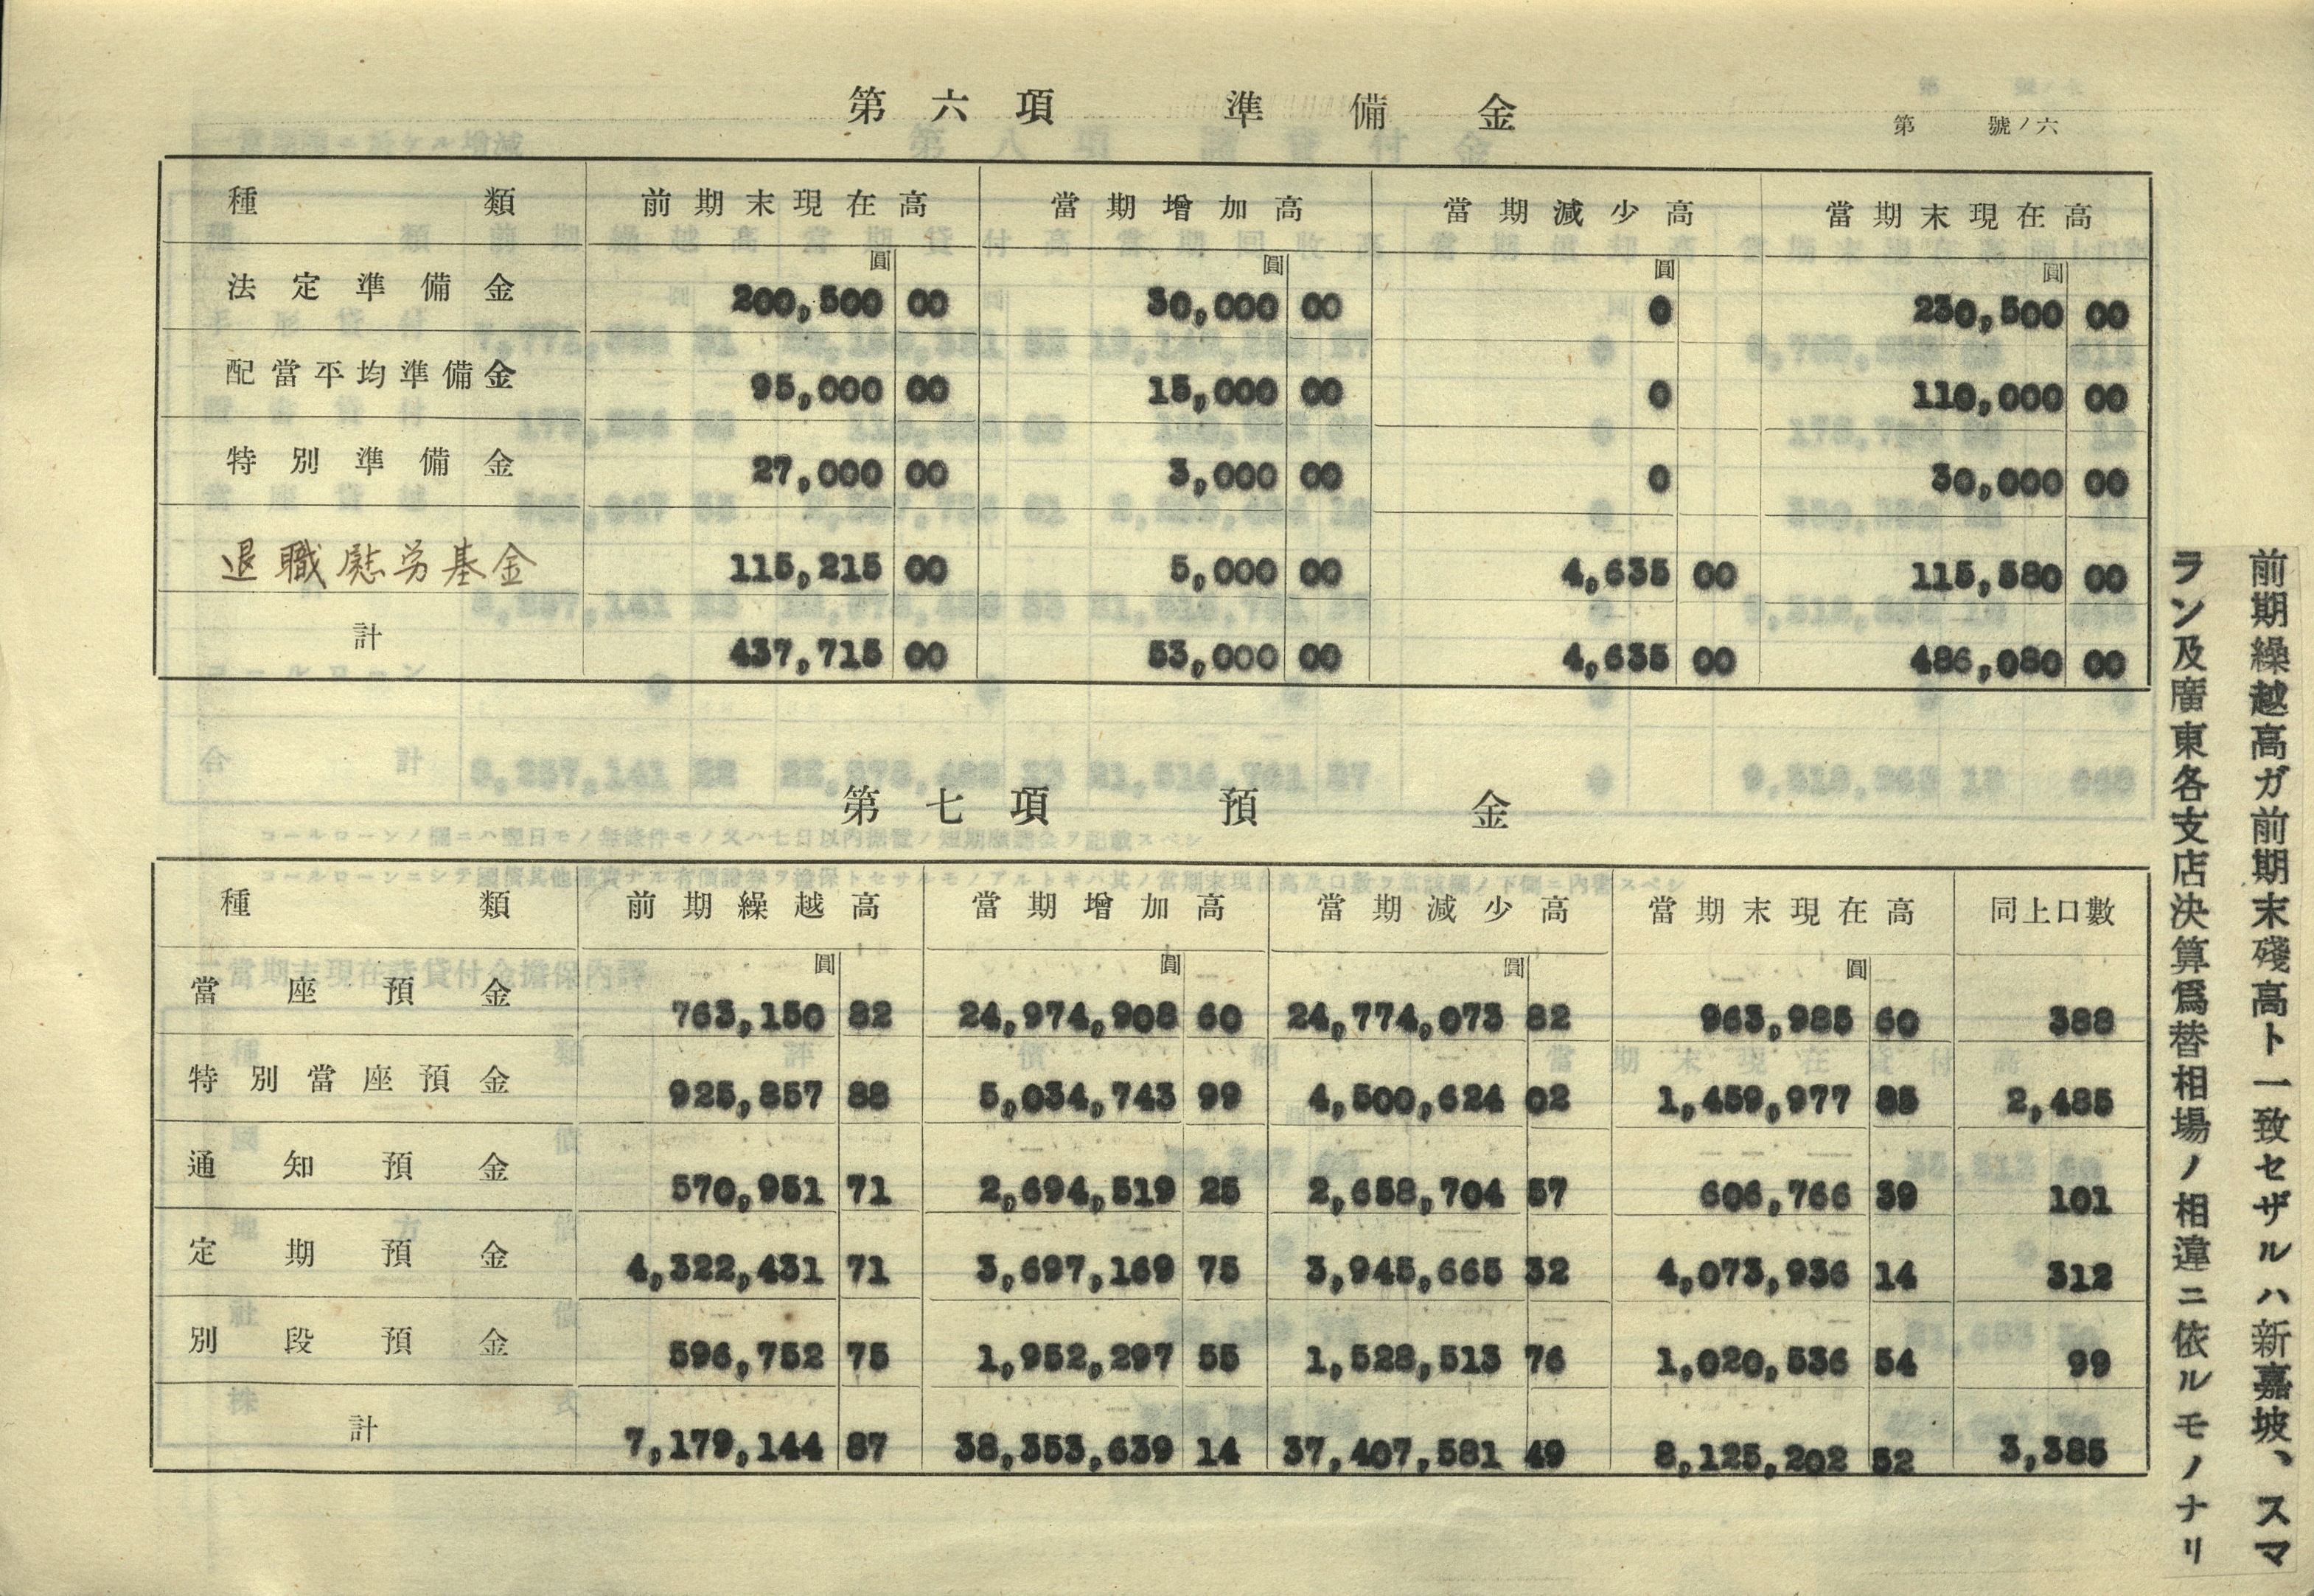 第六項 準備金
第 號ノ六
種類 前期末現在高 當期增加高 當期減少高 當期末現在高
圓 圓 圓 圓
法定準備金 200,500 00 30,000 00 0 230,500 00
配當平均準備金 95,000 00 15,000 00 0 110,000 00
特別準備金 27,000 00 3,000 00 0 30,000 00
退職慰労基金 115,215 00 5,000 00 4,635 00 115,580 00
計 437,715 00 53,000 00 4,635 00 486,080 00
第七項 預金
種類 前期繰越高 當期增加高 當期減少高 當期末現在高 同上口數
圓 圓 圓 圓
當座預金 763,150 82 24,974,908 60 24,774,073 82 963,985 60 388
特別當座預金 925,857 88 5,034,743 99 4,500,624 02 1,459,977 85 2,485
通知預金 570,951 71 2,694,519 25 2,658,704 57 606,766 39 101
定期預金 4,322,431 71 3,697,169 75 3,945,665 32 4,073,936 14 312
別段預金 596,752 75 1,952,297 55 1,528,513 76 1,020,536 54 99
計 7,179,144 87 38,353,639 14 37,407,581 49 8,125,202 52 3,385
前期繰越高ガ前期末殘高ト一致セザルハ新嘉坡、スマ
ラン及廣東各支店決算爲替相場ノ相違ニ依ルモノナリ